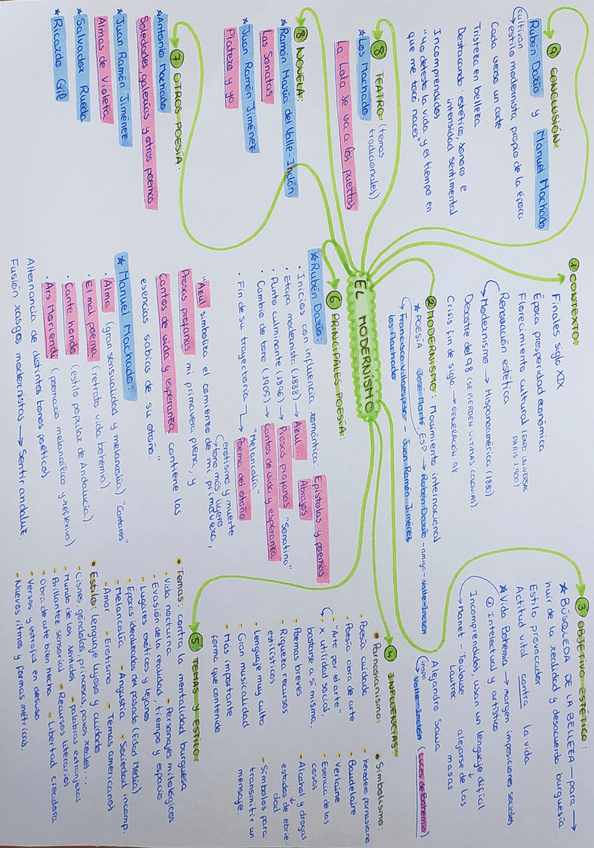 EL MODERNISMO
① CONTEXTO:
Finales siglo XIX
Época prosperidad económica
Florecimiento cultural (EXPO UNIVERSAL PARÍS 1900)
Renovación estética
Modernismo → Hispanoamérica (1880)
Desastre del 98 (SE PIERDEN ÚLTIMAS COLONIAS)
Crisis fin de siglo → GENERACIÓN 98
② MODERNISMO: Movimiento internacional
★ POESÍA José Martí
ESP. → Rubén Darío
Francisco Villaespesa - Juan Ramón Jiménez
Los Machado
③ OBJETIVO ESTÉTICO:
★ BÚSQUEDA DE LA BELLEZA — para →
huir de la realidad y desacuerdo burguesía
Estilo provocador
Actitud vital contra la vida
★ Vida Bohemia → margen imposiciones sociales
intelectual y artístico
Incomprendidos, usan un lenguaje difícil
↓
alejarse de las masas
Manet - Toulouse
Alejandro Sawa
Valle-Inclán (Luces de Bohemia)
④ INFLUENCIAS:
• Parnasianismo:
- Poesía cuidada
- Poesía obra de arte
- "Arte por el arte"
utilidad social,
bastarse a sí misma,
- Poemas breves
- Riqueza recursos
estilísticos
- Lenguaje muy culto
- Gran musicalidad
- Más importante
forma que contenido
• Simbolismo:
- heredero parnasiano
- Baudelaire
- Verlaine
- Esencia de las
cosas
- Alcohol y drogas
↓
estados de ebrie-
dad
- Símbolos para
transmitir un
mensaje.
⑤ TEMAS Y ESTILO:
• Temas: contra la mentalidad burguesa
- Vida nocturna - Personajes mitológicos
- Evasión de la realidad, tiempo y espacio
- Lugares exóticos y lejanos
- Épocas idealizadas del pasado (Edad Media)
- Melancolía - Angustia - Sociedad incomp.
- Amor - Erotismo - Temas americanos
• Estilo: lenguaje lujoso y cuidado
- Cisnes, góndolas, princesas, pavos reales...
- Mundo de los colores - Palabras extranjeras
- Brillante, sensorial - Recursos literarios
- Obra de arte bien hecha - Libertad creadora
- Versos y estrofas en desuso
- Nuevos ritmos y formas métricas,
⑥ PRINCIPALES POESÍA:
★ Rubén Darío:
• Inicios con influencia romántica: Epístolas y poemas
Abrojos
• Etapa modernista (1888) → Azul
• Punto culminante (1896) → Prosas profanas "Sonatina"
• Cambio de tono (1905) → Cantos de vida y esperanza
"Melancolía"
• Fin de su trayectoria → Poema del otoño
erotismo y muerte
tono más ligero
"Azul simboliza el comienzo de mi primavera,
Prosas profanas mi primavera plena, y
Cantos de vida y esperanza contiene las
esencias sabias de su otoño"
★ Manuel Machado:
• Alma (gran sensualidad y melancolía), "Cantares"
• El mal poema (retrato vida bohemia)
• Cante hondo (estilo popular de Andalucía)
• Ars Moriendi (poemario melancólico y reflexivo)
Alternancia de distintos tonos poéticos
Fusión rasgos modernistas → Sentir andaluz
⑦ OTROS POESÍA:
★ Antonio Machado
Soledades galerías y otros poemas
★ Juan Ramón Jiménez
Almas de Violeta
★ Salvador Rueda
★ Ricardo Gil
⑧ NOVELA:
★ Ramón María del Valle-Inclán
Las Sonatas
★ Juan Ramón Jiménez
Platero y yo
⑧ TEATRO: (temas
tradicionales)
★ Los Machado
La Lola se va a los puertos
⑨ CONCLUSIÓN:
Rubén Darío y Manuel Machado
cultivan
estilo modernista propio de la época
Cada verso un corte
Tristeza en belleza
Destacando: estética, sonora e
intensidad sentimental
Incomprendidos
"yo detesto la vida y el tiempo en
que me tocó nacer"